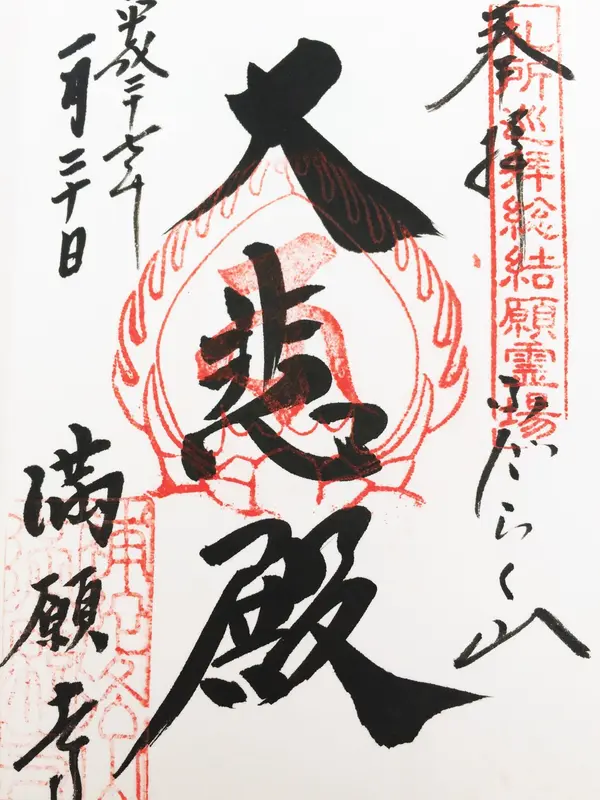 札所巡拝総結願霊場
奉拝
ふだらく山
大悲殿
平成二十七年
一月二十日
満願寺